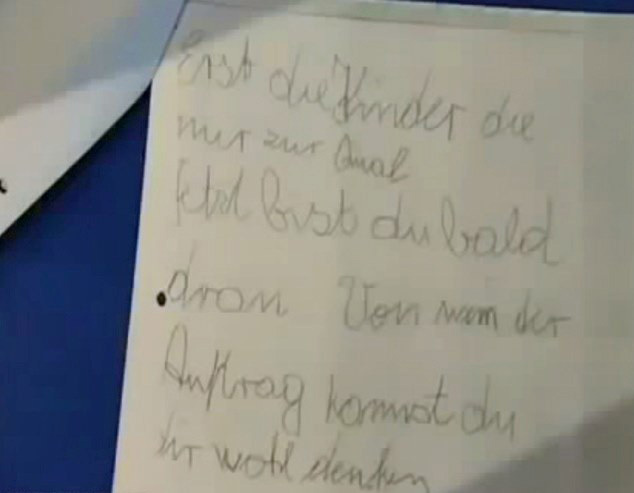 Erst die Kinder die
nur zur Qual
Jetzt bist du bald
dran Von wem der
Auftrag kommt du
dir wohl denken